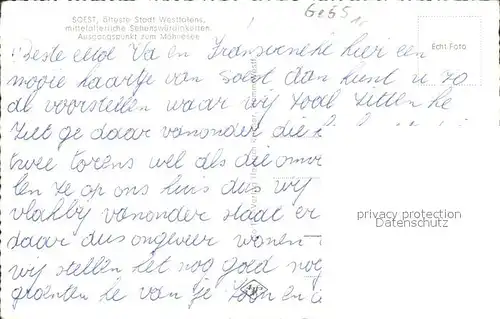 SOEST, älteste Stadt Westfalens,
mittelalterliche Sehenswürdigkeiten.
Ausgangspunkt zum Möhnesee
Echt Foto
Beste Va en hier een
mooie kaartje van Soest dan kunt u zo
al voorstellen waar wij zoal zitten he
ziet ge daar vanonder die
twee torens wel als die
len ze op ons huis dus wij
vlakbij vanonder staat er
daar dus ongeveer wonen
wij stellen het nog goed nog
groenten he van je zoon en
privacy protection
Datenschutz